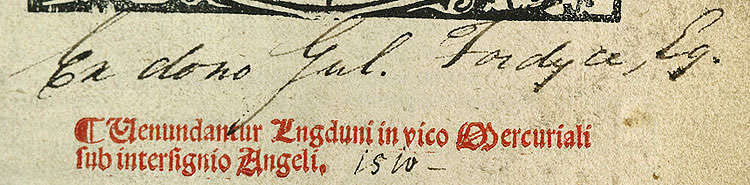 Ex dono Gul. Fordyce, Eq.
¶ Venundantur Lugduni in vico Mercuriali
sub intersignio Angeli. 1510 -